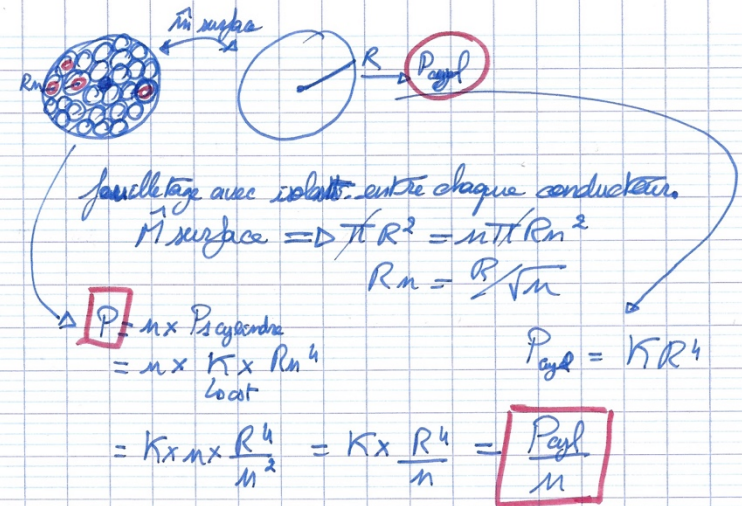 m̂ surface
Rn
R
Pcyl
feuilletage avec isolant entre chaque conducteur.
M̂ surface => πR² = nπRn²
Rn = R/√n
P = n x P1 cylindre
= n x K x Rn⁴
↳ cst
Pcyl = KR⁴
= K x n x R⁴/n² = K x R⁴/n = Pcyl/n